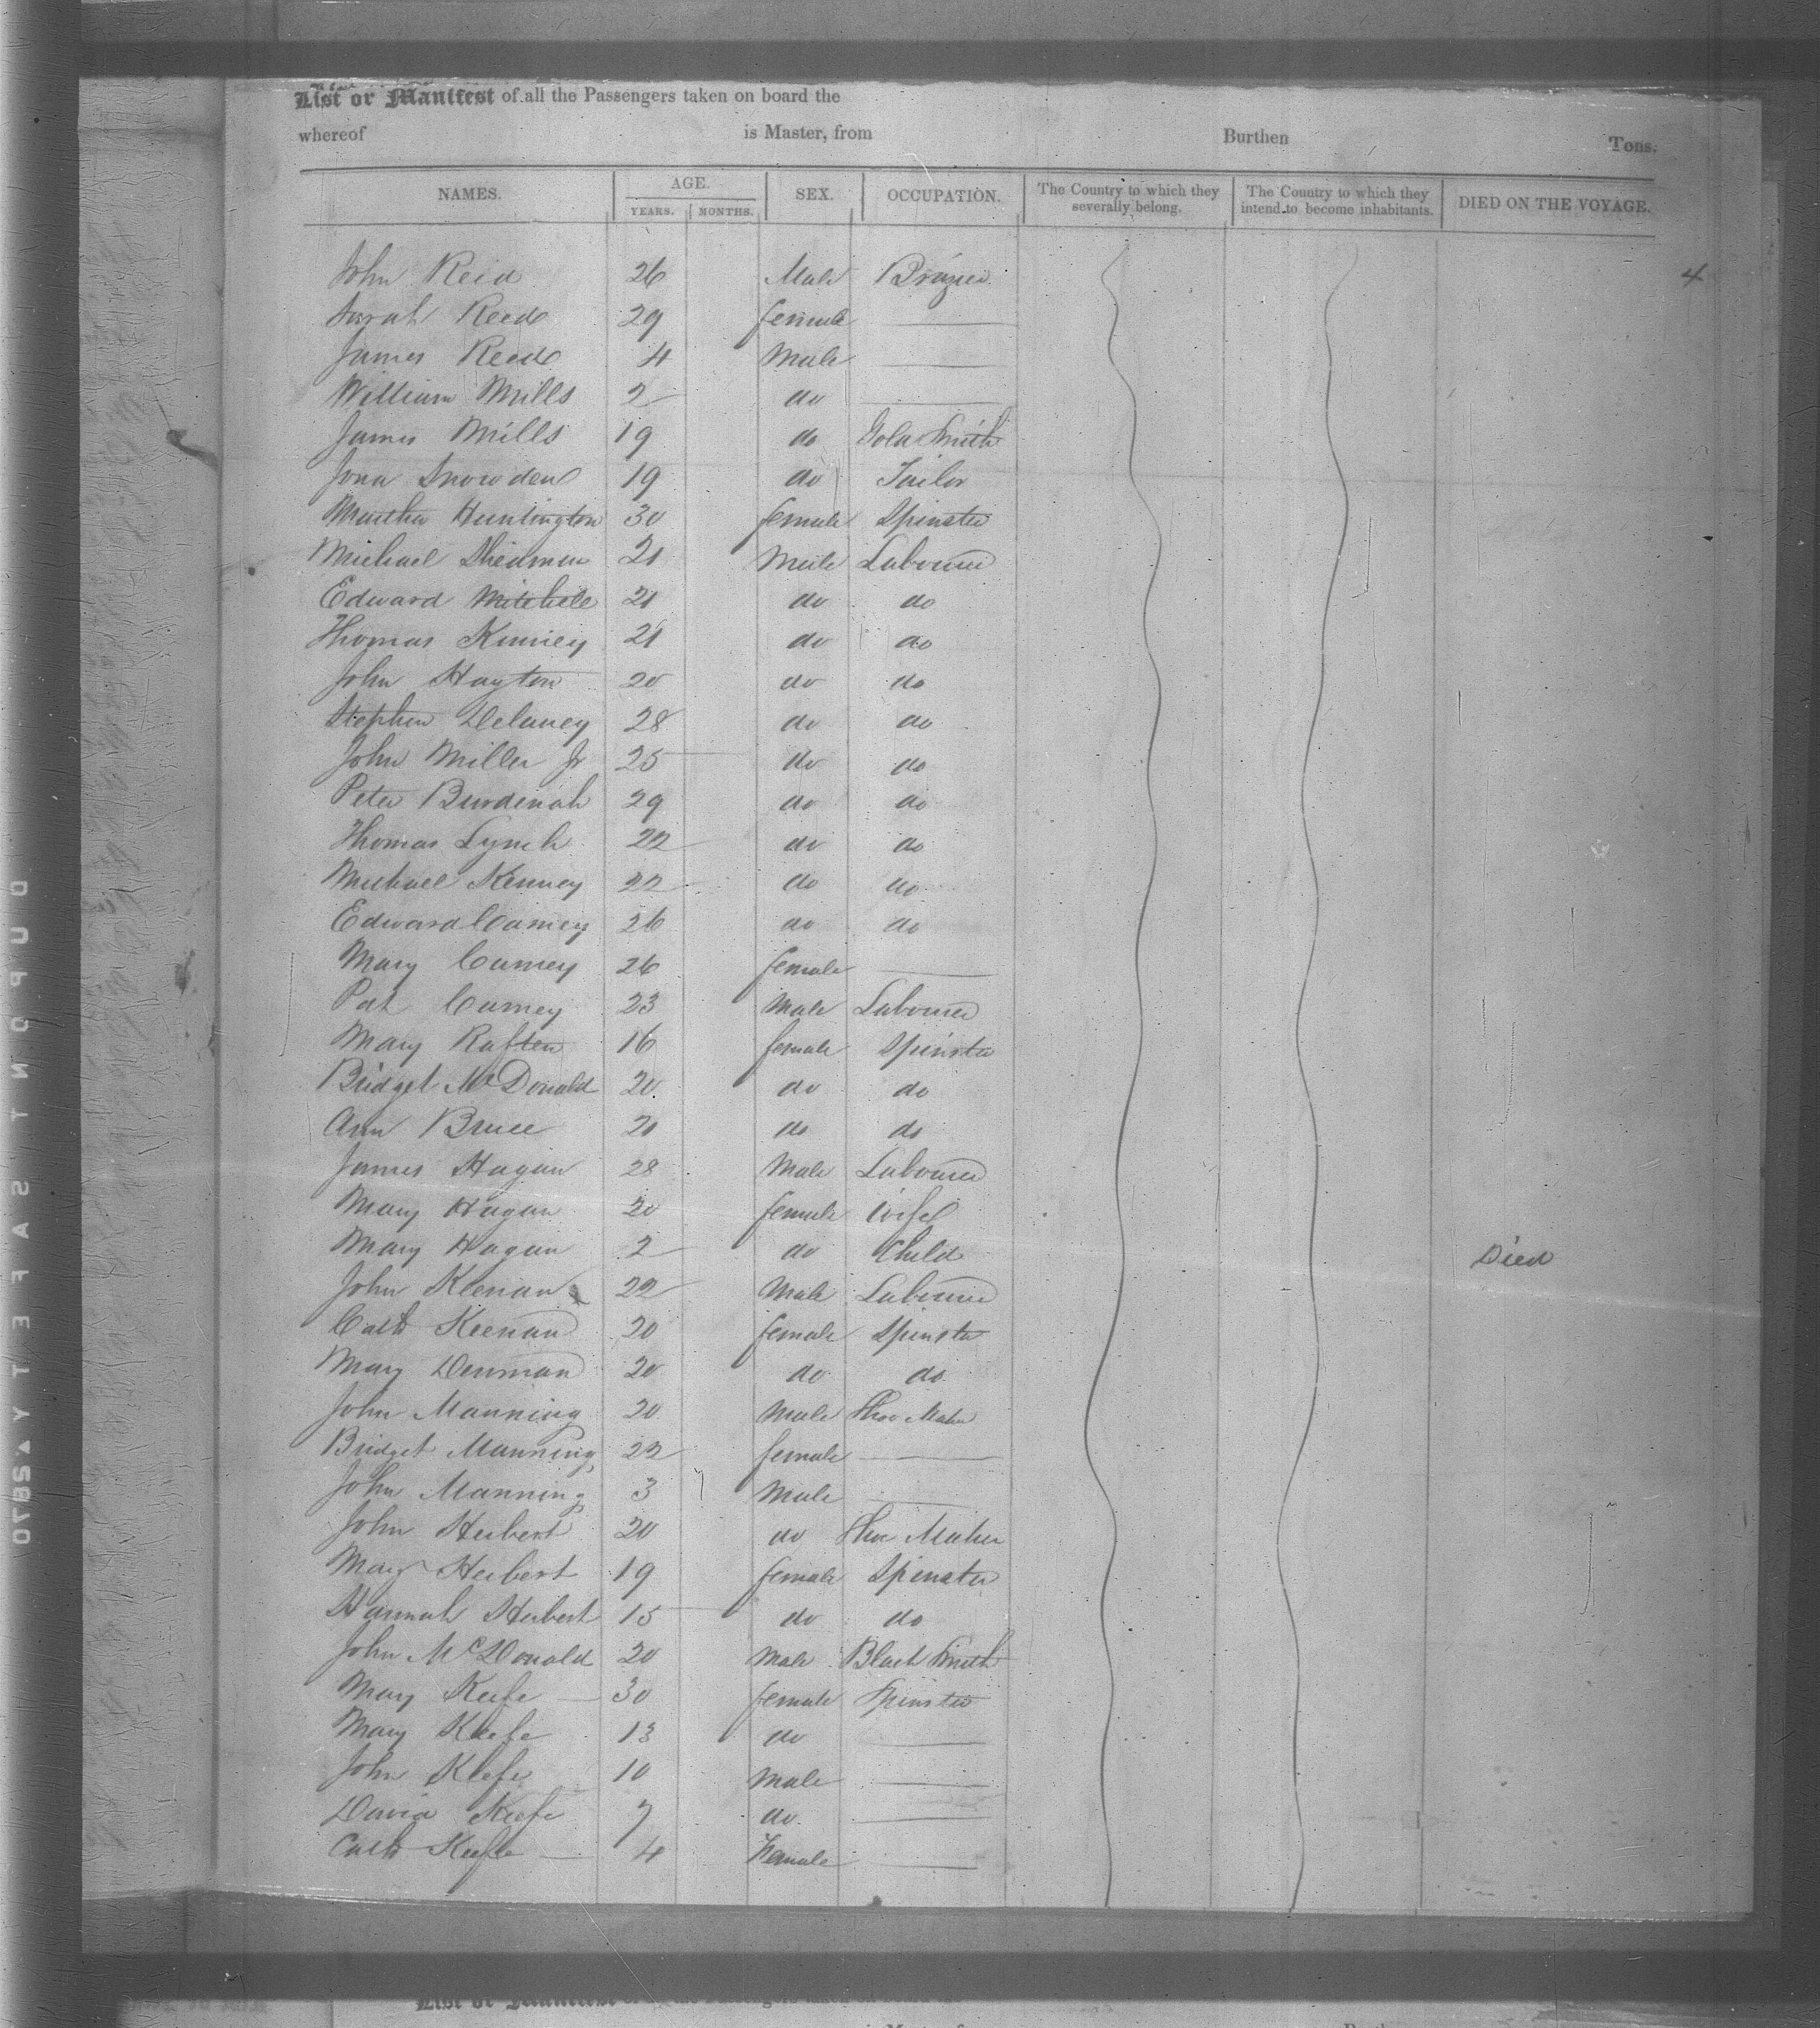 List or Manifest of all the Passengers taken on board the
whereof is Master, from Burthen Tons.
NAMES. AGE. SEX. OCCUPATION. The Country to which they severally belong. The Country to which they intend to become inhabitants. DIED ON THE VOYAGE.
YEARS. MONTHS.
John Reid 26 Male Brazier 4
Sarah Reed 29 female
James Reed 4 Male
William Mills 2 do
James Mills 19 do Gold Smith
Jona Snowden 19 do Tailor
Martha Huntington 30 female Spinster
Michael 21 Male Labourer
Edward Mitchell 21 do do
Thomas Kinney 21 do do
John Hayton 20 do do
Stephen Delaney 28 do do
John Miller Jr 25 do do
Peter 29 do do
Thomas Lynch 22 do do
Michael Kenney 22 do do
Edward Carney 26 do do
Mary Carney 26 female
Pat Carney 23 Male Labourer
Mary Raften 16 female Spinster
Bridget McDonald 20 do do
Ann Bruce 21 do do
James Hagan 28 Male Labourer
Mary Hagan 20 female Wife
Mary Hagan 2 do Child Died
John Keenan 22 Male Labourer
Cath Keenan 20 female Spinster
Mary 20 do do
John Manning 20 Male Shoe Maker
Bridget Manning 22 female
John Manning 3 Male
John Herbert 20 do Shoe Maker
Mary Herbert 19 female Spinster
Hannah Herbert 15 do do
John McDonald 20 Male Black Smith
Mary Keefe 30 female Spinster
Mary Keefe 13 do
John Keefe 10 male
David Keefe 7 do
Cath Keefe 4 Female
DUPONT SAFETY
List or Manifest